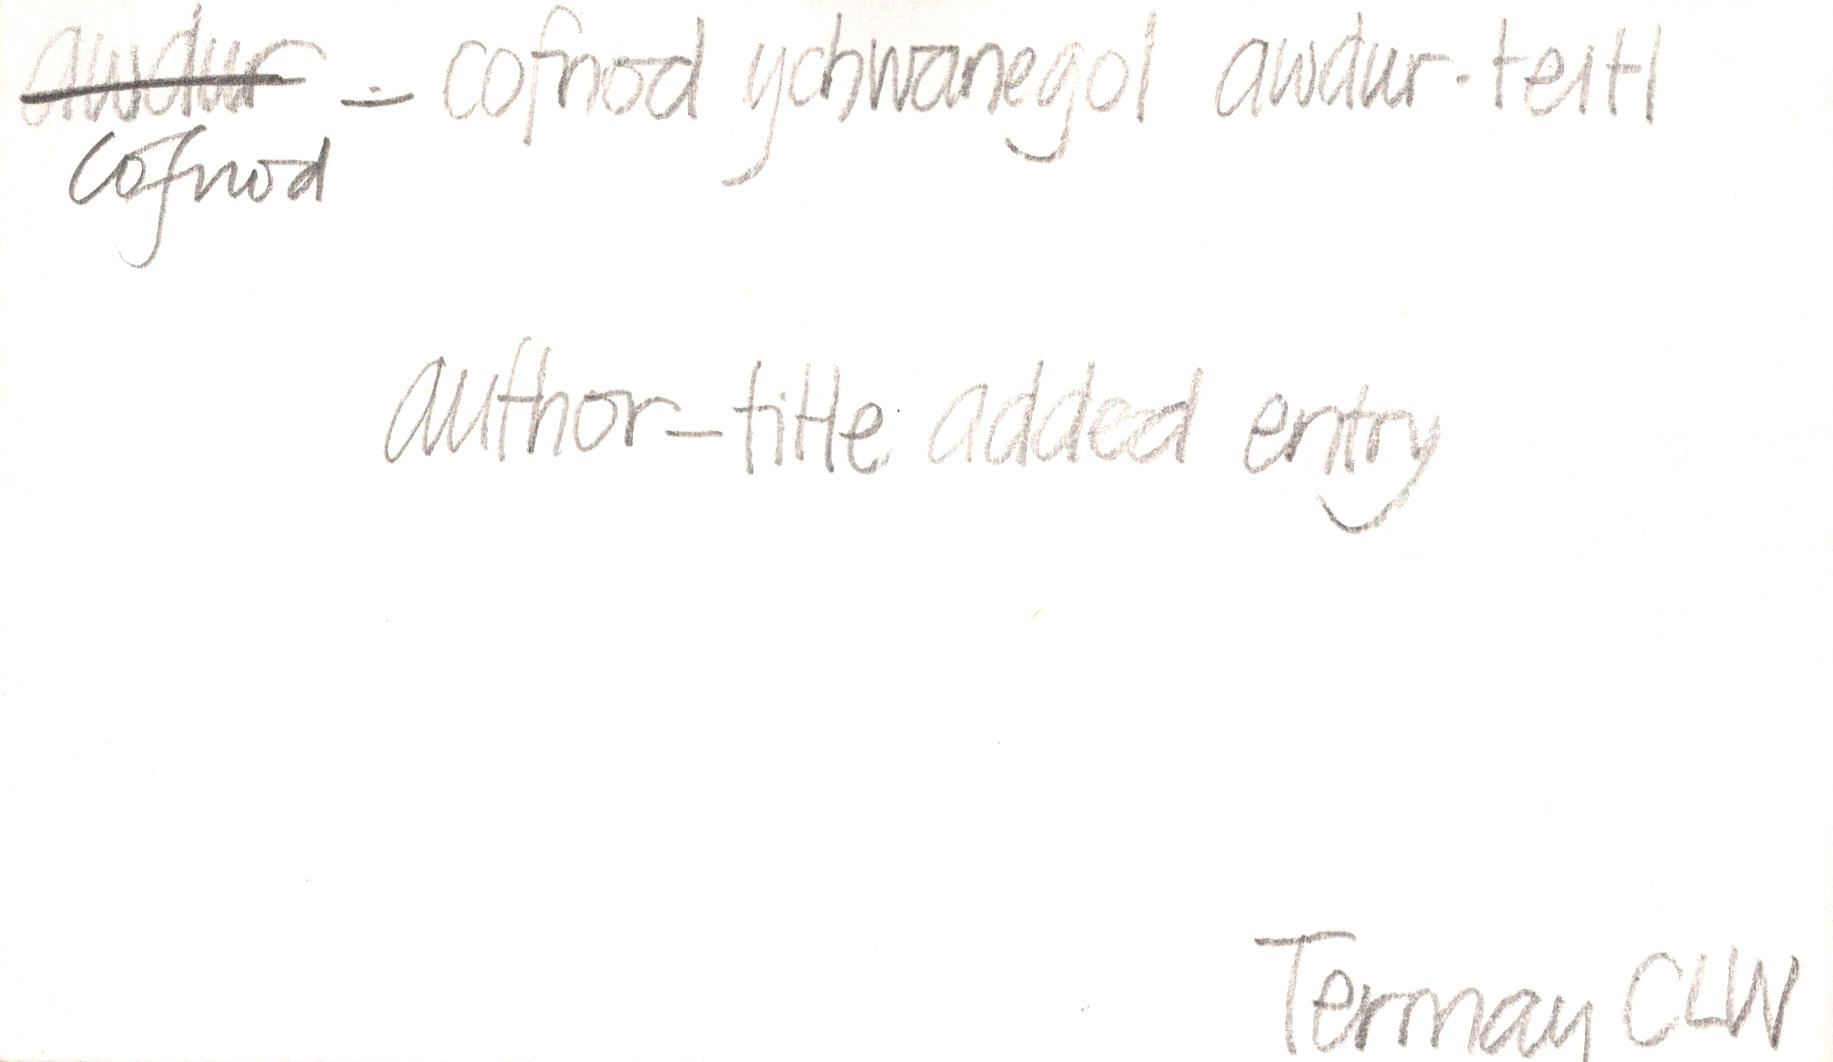 awdur – cofnod ychwanegol awdur-teitl
cofnod
author-title added entry
Termau CLW